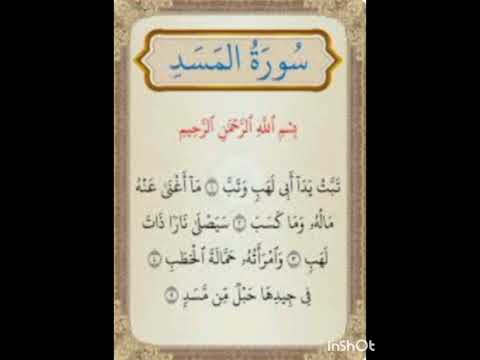 سُورَةُ المَسَدِ
بِسْمِ ٱللَّهِ ٱلرَّحْمَٰنِ ٱلرَّحِيمِ
تَبَّتْ يَدَآ أَبِى لَهَبٍ وَتَبَّ ١ مَآ أَغْنَىٰ عَنْهُ
مَالُهُۥ وَمَا كَسَبَ ٢ سَيَصْلَىٰ نَارًا ذَاتَ
لَهَبٍ ٣ وَٱمْرَأَتُهُۥ حَمَّالَةَ ٱلْحَطَبِ ٤
فِى جِيدِهَا حَبْلٌ مِّن مَّسَدٍۭ ٥
InShOt